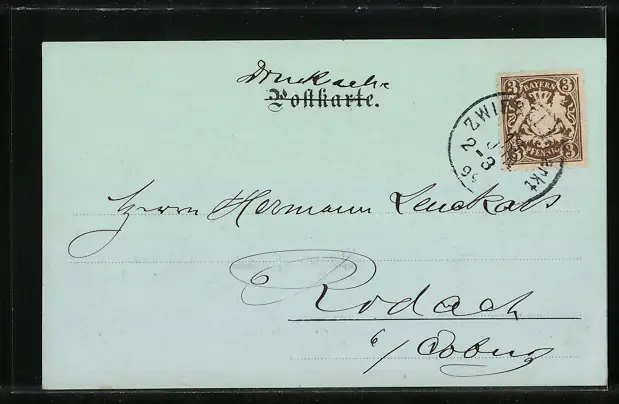 Drucksache
Postkarte.
3 BAYERN 3
3 PFENNIG 3
ZWI
2-3
Herrn Hermann
Rodach
b/Coburg